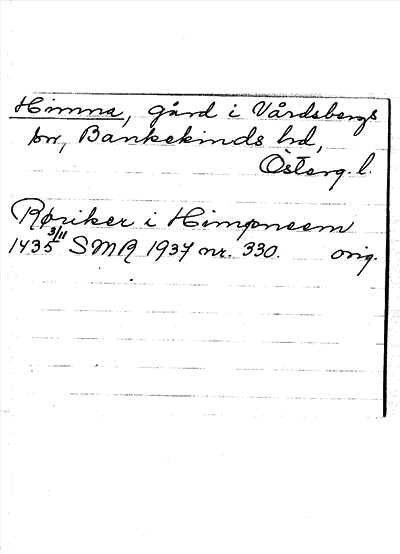 Himna, gård i Vårdsbergs
sn, Bankekinds hd,
Österg. l.
Røriker i Himpneem
1435 3/11 SMR 1937 nr. 330. orig.